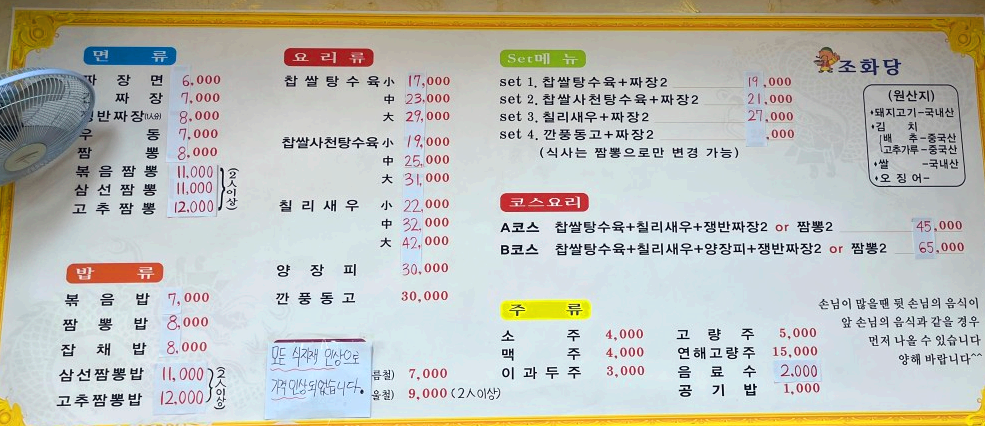 면 류
짜 장 면 6,000
짜 장 7,000
쟁반짜장(1人分) 8,000
우 동 7,000
짬 뽕 8,000
볶 음 짬 뽕 11,000
삼 선 짬 뽕 11,000
고 추 짬 뽕 12,000
(2人이상)
밥 류
볶 음 밥 7,000
짬 뽕 밥 8,000
잡 채 밥 8,000
삼선짬뽕밥 11,000
고추짬뽕밥 12,000
(2人이상)
요 리 류
찹 쌀 탕 수 육 小 17,000
中 23,000
大 29,000
찹쌀사천탕수육 小 19,000
中 25,000
大 31,000
칠 리 새 우 小 22,000
中 32,000
大 42,000
양 장 피 30,000
깐 풍 동 고 30,000
모든 식자재 인상으로
가격 인상 되었습니다.
름철) 7,000
울철) 9,000 (2人이상)
Set메 뉴
set 1. 찹쌀탕수육+짜장2 19,000
set 2. 찹쌀사천탕수육+짜장2 21,000
set 3. 칠리새우+짜장2 27,000
set 4. 깐풍동고+짜장2 ,000
(식사는 짬뽕으로만 변경 가능)
코스요리
A코스 찹쌀탕수육+칠리새우+쟁반짜장2 or 짬뽕2 45,000
B코스 찹쌀탕수육+칠리새우+양장피+쟁반짜장2 or 짬뽕2 65,000
주 류
소 주 4,000
맥 주 4,000
이 과 두 주 3,000
고 량 주 5,000
연해고량주 15,000
음 료 수 2,000
공 기 밥 1,000
조화당
(원산지)
돼지고기-국내산
김 치
배 추-중국산
고추가루-중국산
쌀 -국내산
오 징 어-
손님이 많을땐 뒷 손님의 음식이
앞 손님의 음식과 같을 경우
먼저 나올 수 있습니다
양해 바랍니다^^